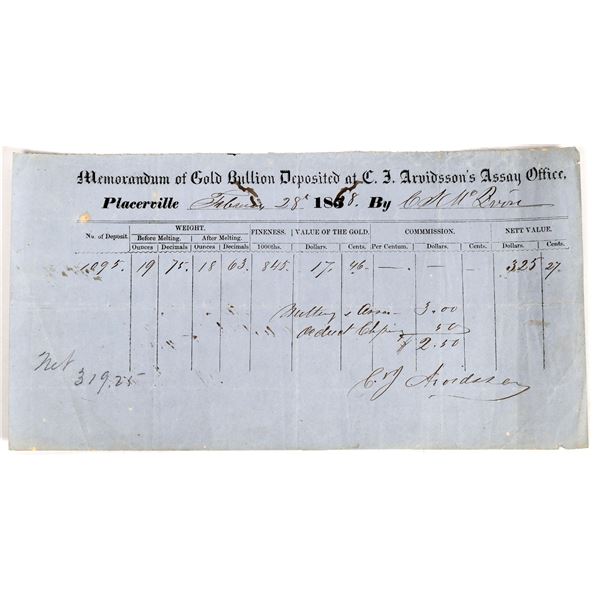 Memorandum of Gold Bullion Deposited at C. J. Arvidsson's Assay Office,
Placerville February 28th 1868. By
WEIGHT. FINENESS. VALUE OF THE GOLD. COMMISSION. NETT VALUE.
No. of Deposit. Before Melting. After Melting.
Ounces Decimals Ounces Decimals 1000ths. Dollars. Cents. Per Centum. Dollars. Cents. Dollars. Cents.
1095. 19 75. 18 63. 845. 17. 46 — — — 325 27.
Melting & Assa 3.00
deduct Chips 50
$ 2.50
Net
319.25
C. J. Arvidsson